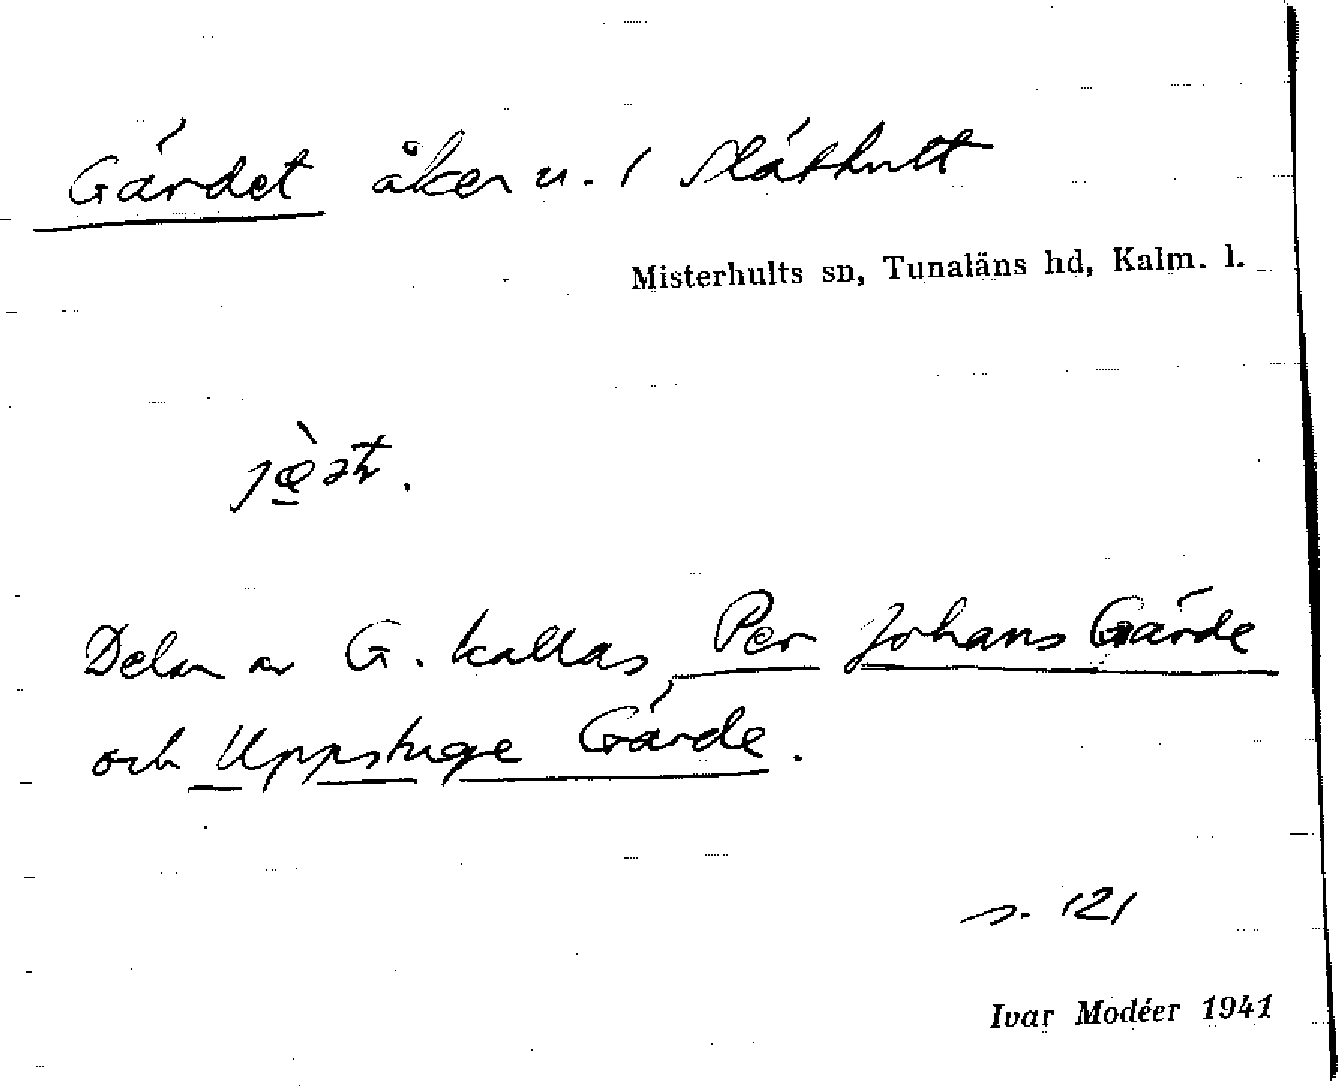 Gärdet åker u. 1 Släthult
Misterhults sn, Tunaläns hd, Kalm. l.
Delar av G. kallas Per Johans Gärde
och Uppstuge Gärde.
s. 121
Ivar Modéer 1941